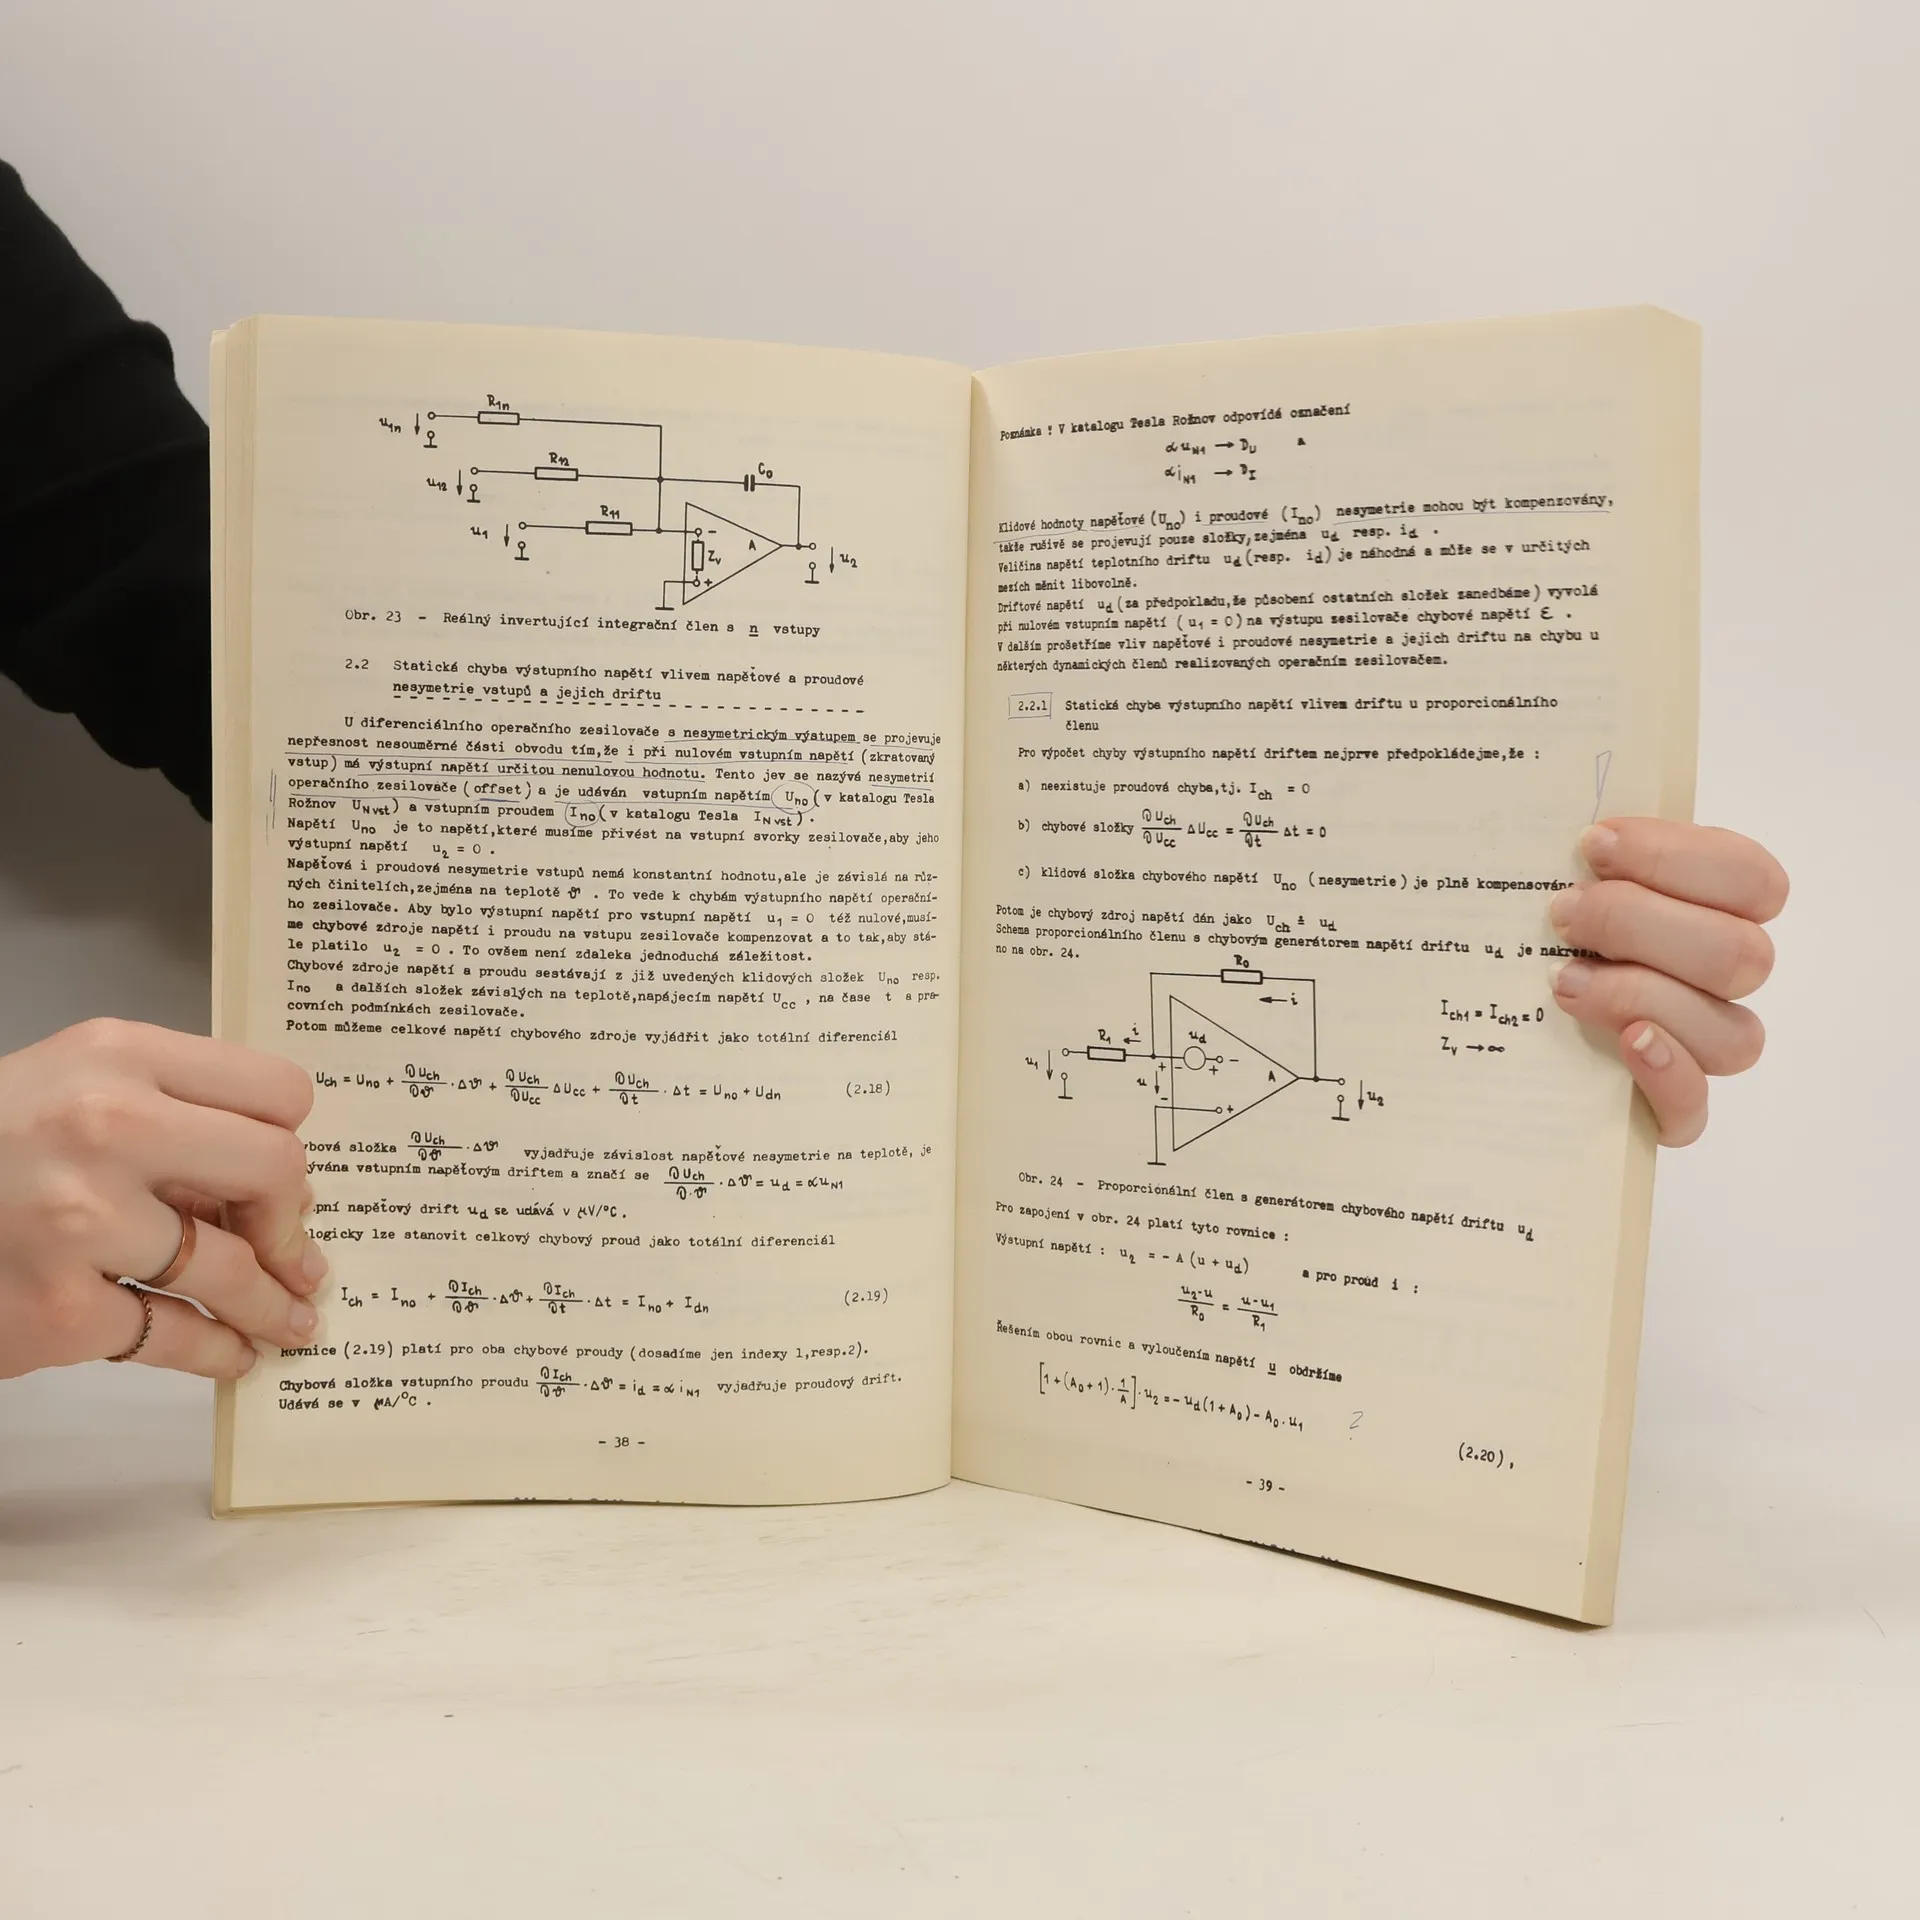 R₁ₙ
u₁ₙ
R₁₂
C₀
u₁₂
R₁₁
u₁
−
Zᵥ
A
u₂
+
Obr. 23 - Reálný invertující integrační člen s n vstupy
2.2 Statická chyba výstupního napětí vlivem napěťové a proudové
nesymetrie vstupů a jejich driftu
U diferenciálního operačního zesilovače s nesymetrickým výstupem se projevuje
nepřesnost nesouměrné části obvodu tím,že i při nulovém vstupním napětí (zkratovaný
vstup) má výstupní napětí určitou nenulovou hodnotu. Tento jev se nazývá nesymetrií
operačního zesilovače (offset) a je udáván vstupním napětím U_no (v katalogu Tesla
Rožnov U_N vst) a vstupním proudem I_no (v katalogu Tesla I_N vst).
Napětí U_no je to napětí,které musíme přivést na vstupní svorky zesilovače,aby jeho
výstupní napětí u₂ = 0 .
Napěťová i proudová nesymetrie vstupů nemá konstantní hodnotu,ale je závislá na růz-
ných činitelích,zejména na teplotě ϑ . To vede k chybám výstupního napětí operační-
ho zesilovače. Aby bylo výstupní napětí pro vstupní napětí u₁ = 0 též nulové,musí-
me chybové zdroje napětí i proudu na vstupu zesilovače kompenzovat a to tak,aby stá-
le platilo u₂ = 0 . To ovšem není zdaleka jednoduchá záležitost.
Chybové zdroje napětí a proudu sestávají z již uvedených klidových složek U_no resp.
I_no a dalších složek závislých na teplotě,napájecím napětí U_cc , na čase t a pra-
covních podmínkách zesilovače.
Potom můžeme celkové napětí chybového zdroje vyjádřit jako totální diferenciál
U_ch = U_no + ∂U_ch/∂ϑ · Δϑ + ∂U_ch/∂U_cc ΔU_cc + ∂U_ch/∂t · Δt = U_no + U_dn (2.18)
bová složka ∂U_ch/∂ϑ · Δϑ vyjadřuje závislost napěťové nesymetrie na teplotě, je
ývána vstupním napěťovým driftem a značí se ∂U_ch/∂·ϑ · Δϑ = u_d = αu_N1
pní napěťový drift u_d se udává v μV/°C.
logicky lze stanovit celkový chybový proud jako totální diferenciál
I_ch = I_no + ∂I_ch/∂ϑ · Δϑ + ∂I_ch/∂t · Δt = I_no + I_dn (2.19)
Rovnice (2.19) platí pro oba chybové proudy (dosadíme jen indexy 1,resp.2).
Chybová složka vstupního proudu ∂I_ch/∂ϑ · Δϑ = i_d = α i_N1 vyjadřuje proudový drift.
Udává se v μA/°C .
- 38 -
Poznámka ! V katalogu Tesla Rožnov odpovídá označení
αu_N1 → D_U a
αi_N1 → D_I
Klidové hodnoty napěťové (U_no) i proudové (I_no) nesymetrie mohou být kompenzovány,
takže rušivě se projevují pouze složky,zejména u_d resp. i_d .
Veličina napětí teplotního driftu u_d (resp. i_d) je náhodná a může se v určitých
mezích měnit libovolně.
Driftové napětí u_d (za předpokladu,že působení ostatních složek zanedbáme) vyvolá
při nulovém vstupním napětí (u₁ = 0) na výstupu zesilovače chybové napětí ε .
V dalším prošetříme vliv napěťové i proudové nesymetrie a jejich driftu na chybu u
některých dynamických členů realizovaných operačním zesilovačem.
2.2.1 Statická chyba výstupního napětí vlivem driftu u proporcionálního
členu
Pro výpočet chyby výstupního napětí driftem nejprve předpokládejme,že :
a) neexistuje proudová chyba,tj. I_ch = 0
b) chybové složky ∂U_ch/∂U_cc ΔU_cc = ∂U_ch/∂t Δt = 0
c) klidová složka chybového napětí U_no (nesymetrie) je plně kompensována
Potom je chybový zdroj napětí dán jako U_ch ≐ u_d
Schema proporcionálního členu s chybovým generátorem napětí driftu u_d je nakres
no na obr. 24.
R₀
i
I_ch1 = I_ch2 = 0
Zᵥ → ∞
R₁
i
u_d
u₁
+
−
+
−
u
A
−
+
u₂
Obr. 24 - Proporcionální člen s generátorem chybového napětí driftu u_d
Pro zapojení v obr. 24 platí tyto rovnice :
Výstupní napětí : u₂ = - A (u + u_d) a pro proud i :
(u₂-u)/R₀ = (u-u₁)/R₁
Řešením obou rovnic a vyloučením napětí u obdržíme
[1+(A₀+1)·1/A]·u₂ = - u_d(1+A₀) - A₀·u₁ ?
(2.20),
- 39 -